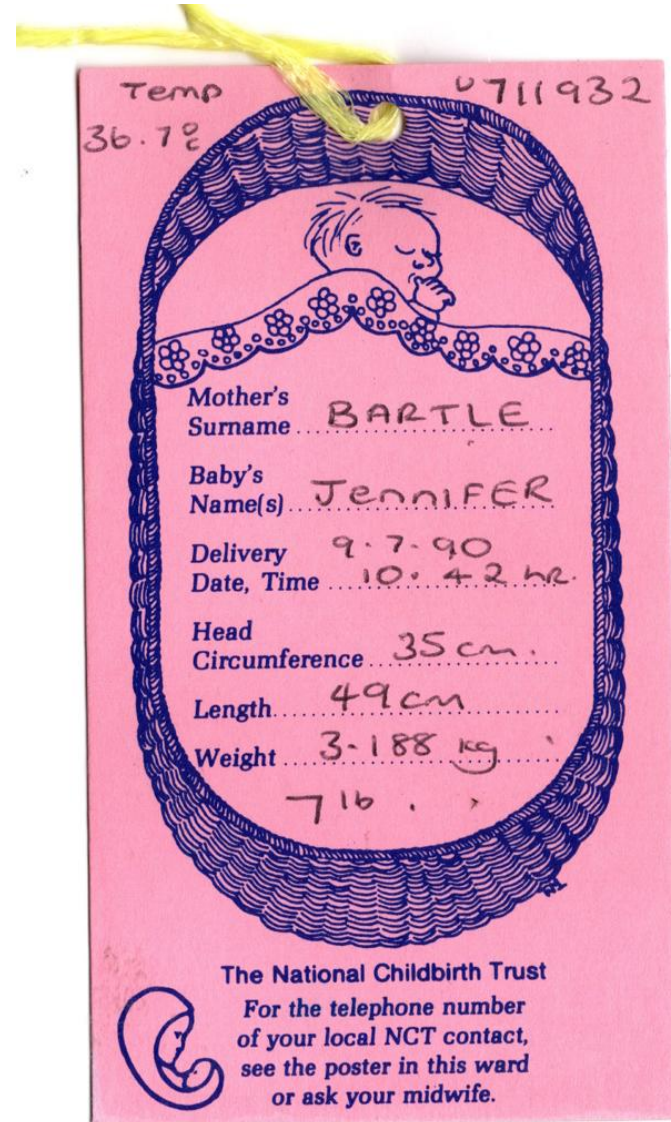 Temp U711932
36.7°C
Mother's
Surname BARTLE
Baby's
Name(s) JennIFER
Delivery 9.7.90
Date, Time 10.42 hr.
Head
Circumference 35 cm.
Length 49 cm
Weight 3.188 kg
7 lb.
The National Childbirth Trust
For the telephone number
of your local NCT contact,
see the poster in this ward
or ask your midwife.